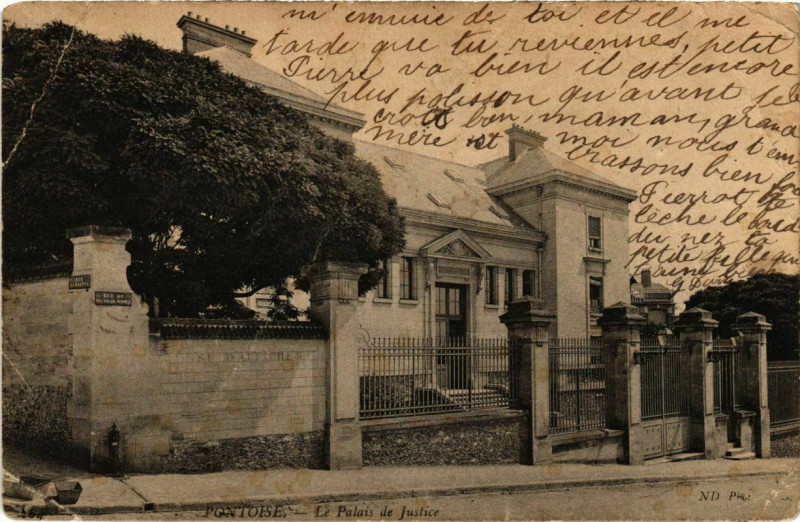 m'ennuie de toi et il me
tarde que tu reviennes, petit
Pierre va bien il est encore
plus polisson qu'avant je le
crois bon, maman, grand
mère et moi nous t'em
brassons bien
Pierrot te
lèche le bord
du nez ta
petite fille qui
t'aime
DÉFENSE D'AFFICHER
RUE
164 PONTOISE. — Le Palais de Justice
ND Phot